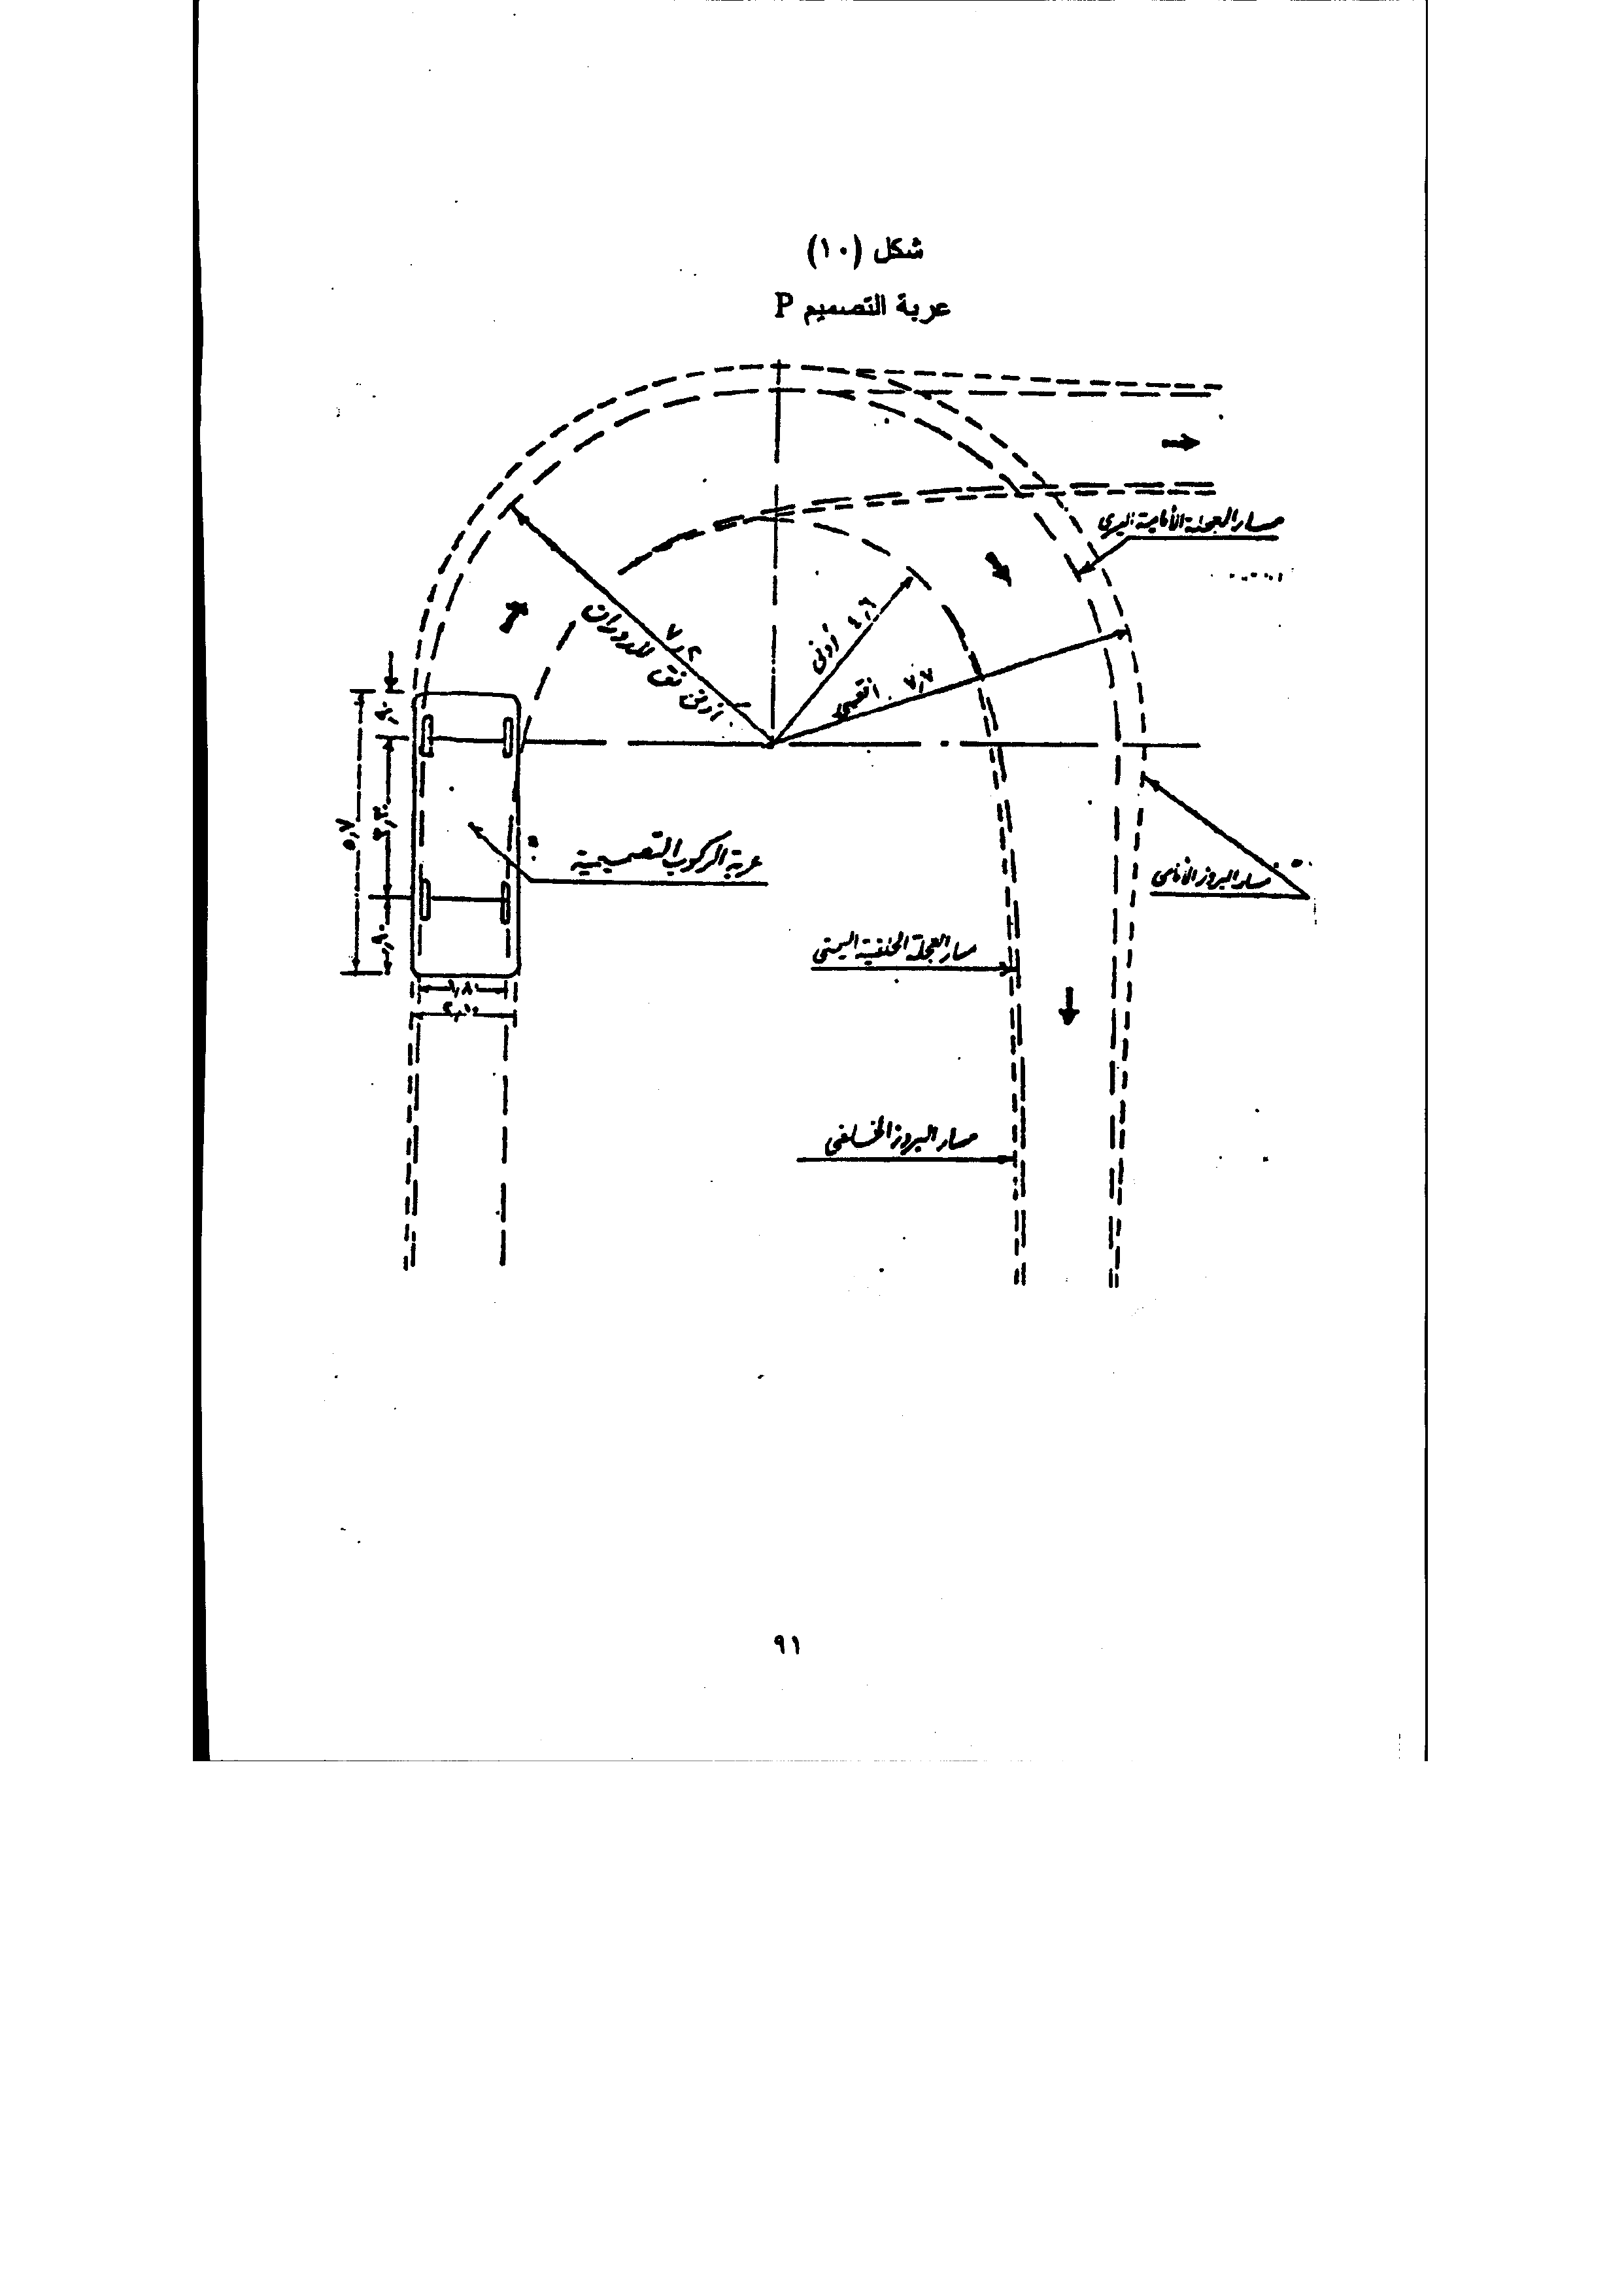 شكل (١٠)
عربة التصميم P
مسار العجلة الأمامية اليسرى
أدنى نق للدوران
٧٫٢
أدنى ٤٫٦
أقصى ٧٫٧
٫٩٠
٥٫٧
٣٫٣٠
٫٩٠
عربة الركوب التصميمية
مسار البروز الأمامى
مسار العجلة الخلفية اليمنى
١٫٨٠
٢٫١٠
مسار البروز الخلفى
٩١